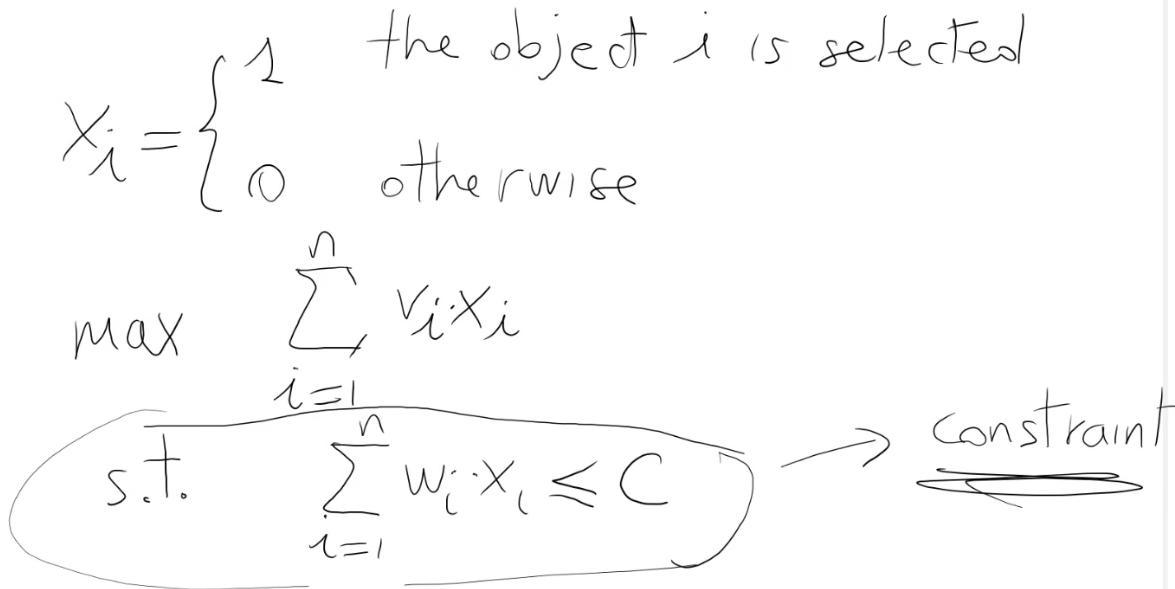 x_i = { 1 the object i is selected
0 otherwise
max \sum_{i=1}^{n} v_i \cdot x_i
s.t. \sum_{i=1}^{n} w_i \cdot x_i ≤ C → constraint